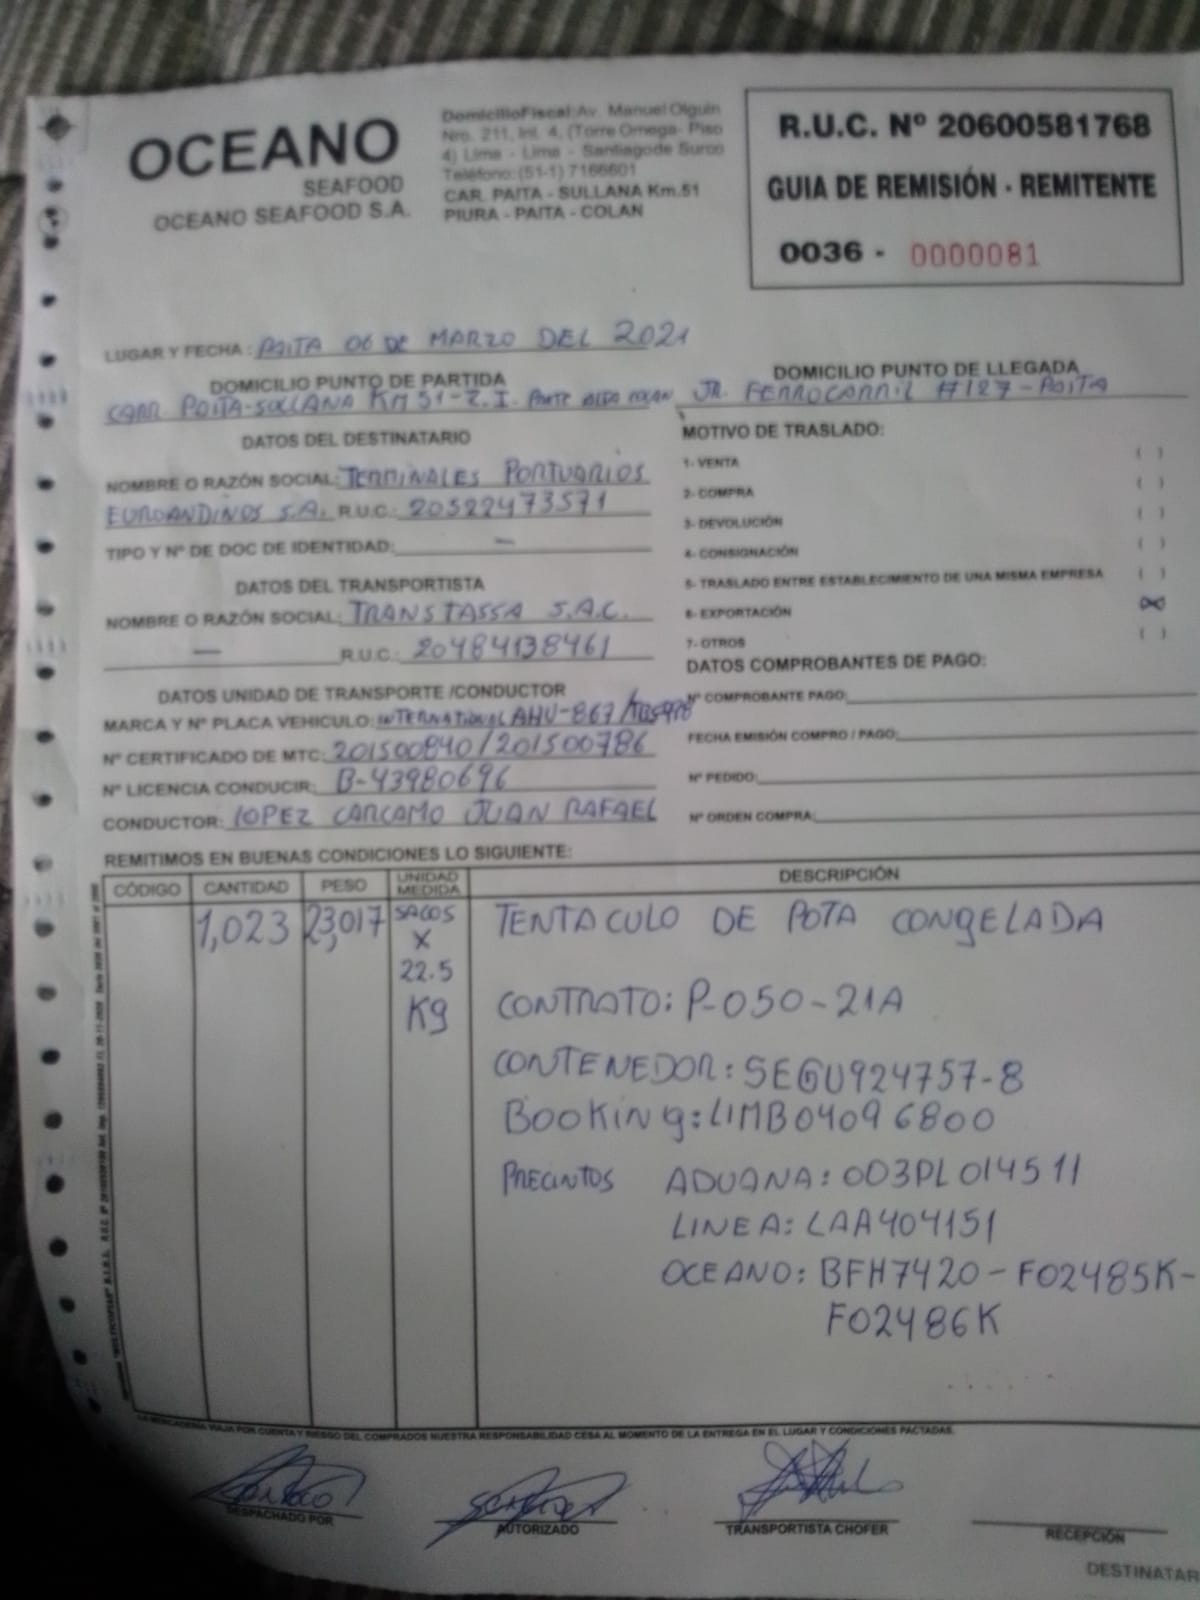 OCEANO
SEAFOOD
OCEANO SEAFOOD S.A.
DomicilioFiscal:Av. Manuel Olguin
Nro. 211, Int. 4, (Torre Omega- Piso
4) Lima - Lima - Santiagode Surco
Teléfono:(51-1) 7166601
CAR. PAITA - SULLANA Km.51
PIURA - PAITA - COLAN
R.U.C. Nº 20600581768
GUIA DE REMISIÓN - REMITENTE
0036 - 0000081
LUGAR Y FECHA: PAITA 06 DE MARZO DEL 2021
DOMICILIO PUNTO DE PARTIDA
CARR PAITA-SULLANA KM 51-Z.I. PARTE ALTA COLAN
DOMICILIO PUNTO DE LLEGADA
JR. FERROCARRIL #127-PAITA
DATOS DEL DESTINATARIO
NOMBRE O RAZÓN SOCIAL: TERMINALES PORTUARIOS
EUROANDINOS S.A. R.U.C.: 20522473571
TIPO Y Nº DE DOC DE IDENTIDAD: -
DATOS DEL TRANSPORTISTA
NOMBRE O RAZÓN SOCIAL: TRANSTASSA S.A.C.
- R.U.C.: 20484138461
DATOS UNIDAD DE TRANSPORTE /CONDUCTOR
MARCA Y Nº PLACA VEHICULO: INTERNATIONAL AHU-867/
Nº CERTIFICADO DE MTC: 201500840/201500786
Nº LICENCIA CONDUCIR: B-43980696
CONDUCTOR: LOPEZ CARCAMO JUAN RAFAEL
MOTIVO DE TRASLADO:
1- VENTA ( )
2- COMPRA ( )
3- DEVOLUCIÓN ( )
4- CONSIGNACIÓN ( )
5- TRASLADO ENTRE ESTABLECIMIENTO DE UNA MISMA EMPRESA ( )
6- EXPORTACIÓN (X)
7- OTROS ( )
DATOS COMPROBANTES DE PAGO:
Nº COMPROBANTE PAGO:
FECHA EMISIÓN COMPRO / PAGO:
Nº PEDIDO:
Nº ORDEN COMPRA:
REMITIMOS EN BUENAS CONDICIONES LO SIGUIENTE:
CÓDIGO CANTIDAD PESO UNIDAD MEDIDA DESCRIPCIÓN
1,023 23,017 SACOS X 22.5 Kg TENTACULO DE POTA CONGELADA
CONTRATO: P-050-21A
CONTENEDOR: SEGU924757-8
BOOKING: LIMB04096800
PRECINTOS ADUANA: 003PL014511
LINEA: LAA404151
OCEANO: BFH7420-F02485K-
F02486K
LA MERCADERIA VIAJA POR CUENTA Y RIESGO DEL COMPRADOS NUESTRA RESPONSABILIDAD CESA AL MOMENTO DE LA ENTREGA EN EL LUGAR Y CONDICIONES PACTADAS.
DESPACHADO POR
AUTORIZADO
TRANSPORTISTA CHOFER
RECEPCIÓN
DESTINATAR